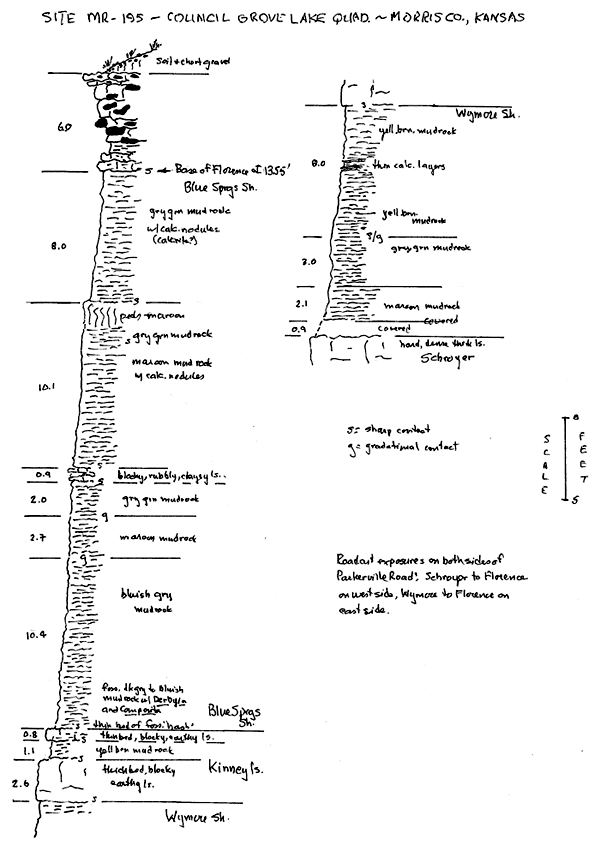 SITE MR-195 - COUNCIL GROVE LAKE QUAD. ~ MORRIS CO., KANSAS
Soil + chert gravel
6.0
s ← Base of Florence at 1355'
Blue Sprgs Sh.
gry grn mudrock
w/ calc. nodules
(calcrete?)
8.0
s
peds-maroon
s gry grn mudrock
maroon mudrock
w/ calc. nodules
10.1
s
0.9
blocky, rubbly, clayey ls..
s
2.0
gry grn mudrock
g
2.7
maroon mudrock
g
bluish gry
mudrock
10.4
foss. dk gry to bluish
mudrock w/ Derbyia
and Composita
Blue Sprgs
Sh.
s
thin bed of foss. hash
0.8
s
thin bed, blocky, earthy ls.
1.1
yell brn mudrock
s
Kinney ls.
thick bed, blocky
earthy ls.
2.6
s
Wymore Sh.
s
Wymore Sh.
yell brn. mudrock
8.0
thin calc. layers
yell brn
mudrock
s/g
grey grn mudrock
3.0
2.1
maroon mudrock
covered
0.9
covered
hard, dense thick ls.
Schroyer
s = sharp contact
g = gradational contact
SCALE
0
FEET
5
Roadcut exposures on both sides of
Parkerville Road; Schroyer to Florence
on west side, Wymore to Florence on
east side.